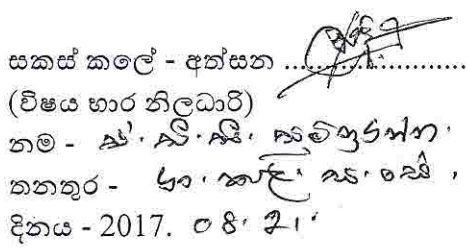 සකස් කලේ - අත්සන ..........................
(විෂය භාර නිලධාරි)
නම - එ. සී. සී. සුමිත්‍රරත්න.
තනතුර -
දිනය - 2017. 08. 21.